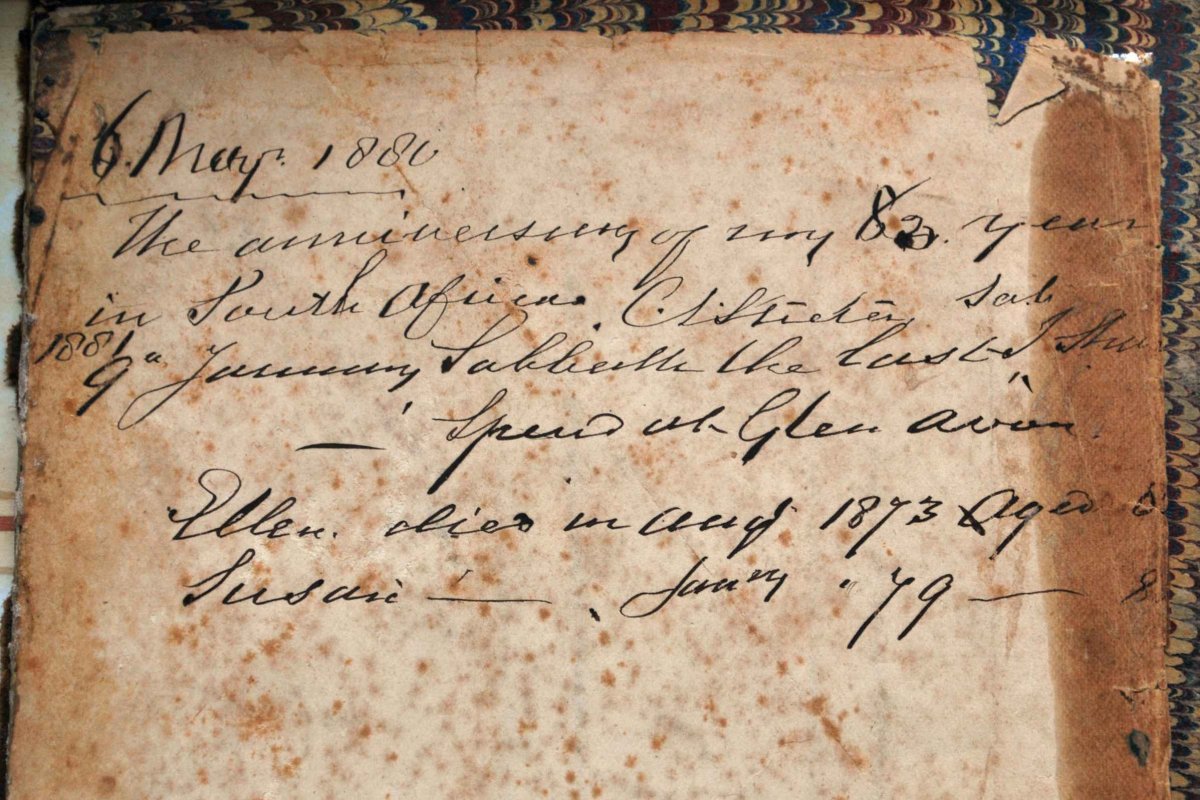 6. May. 1880
The anniversary of my year
in South Africa. sat
1881
9 January Sabbath the last I
— spend at Glen Avon.
Ellen. died in augt 1873 Aged
Susan — Jany " 79 — 8